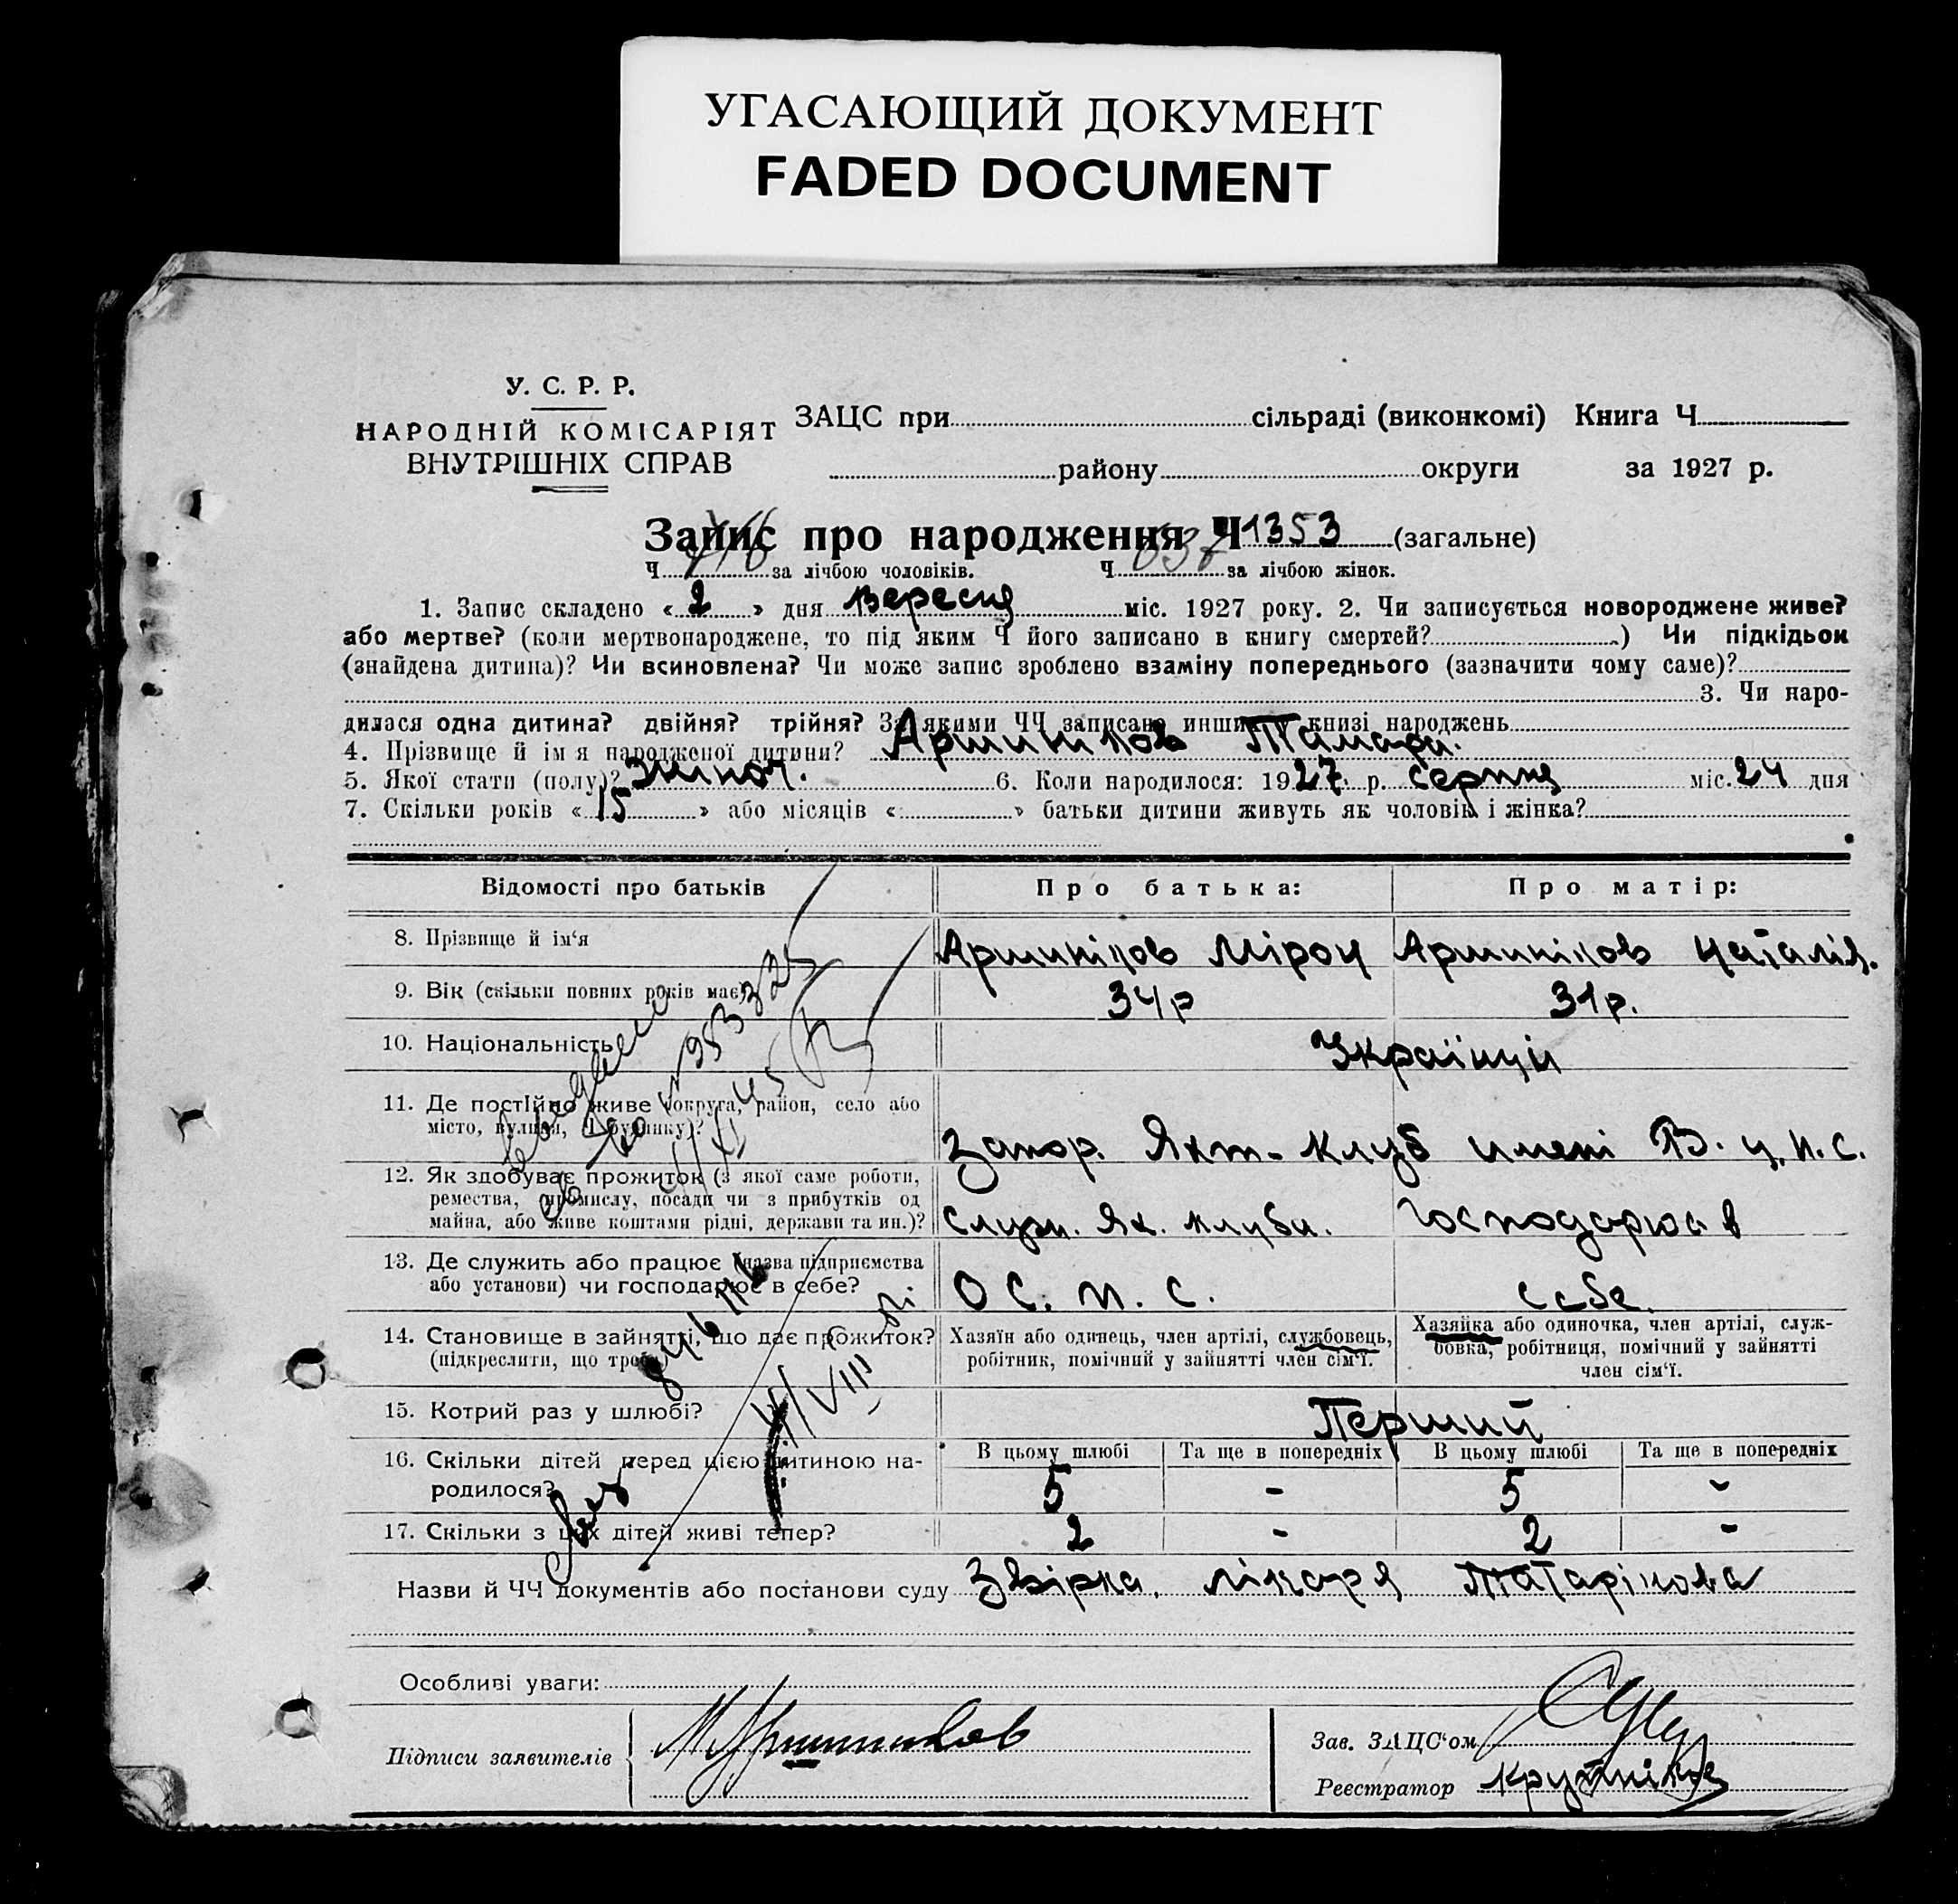 УГАСАЮЩИЙ ДОКУМЕНТ
FADED DOCUMENT
У. С. Р. Р.
НАРОДНІЙ КОМІСАРІЯТ
ВНУТРІШНІХ СПРАВ
ЗАЦС при сільраді (виконкомі) Книга Ч
району округи за 1927 р.
Запис про народження Ч 1353 (загальне)
Ч 716 за лічбою чоловіків. Ч 637 за лічбою жінок.
1. Запис складено « 2 » дня Вересня міс. 1927 року. 2. Чи записується новороджене живе?
або мертве? (коли мертвонароджене, то під яким Ч його записано в книгу смертей? ) Чи підкідьок
(знайдена дитина)? Чи всиновлена? Чи може запис зроблено взаміну попереднього (зазначити чому саме)?
3. Чи наро-
дилася одна дитина? двійня? трійня? За якими ЧЧ записано инших у книзі народжень
4. Прізвище й ім я народженої дитини? Аршиніков Тамара.
5. Якої стати (полу)? жіноч. 6. Коли народилося: 1927 р. серпня міс. 24 дня
7. Скільки років « 15 » або місяців « » батьки дитини живуть як чоловік і жінка?
Відомості про батьків Про батька: Про матір:
8. Прізвище й ім‘я Аршиніков Мірон Аршиніков Наталія.
9. Вік (скільки повних років має) 34р 31р.
10. Національність Українці
11. Де постійно живе (округа, район, село або
місто, вулиця, Ч будинку)? Запор. Яхт-клуб имені В.Ц.П.С.
12. Як здобуває прожиток (з якої саме роботи,
ремества, промислу, посади чи з прибутків од
майна, або живе коштами рідні, держави та ин.)? служ. Ях. клуби. Господарює в
13. Де служить або працює (назва підприємства
або установи) чи господарює в себе? О С. П. С. себе.
14. Становище в зайнятті, що дає прожиток?
(підкреслити, що треба)
Хазяїн або одинець, член артілі, службовець,
робітник, помічний у зайнятті член сім‘ї.
Хазяйка або одиночка, член артілі, служ-
бовка, робітниця, помічний у зайнятті
член сім‘ї.
15. Котрий раз у шлюбі? Перший
16. Скільки дітей перед цією дитиною на-
родилося?
В цьому шлюбі Та ще в попередніх В цьому шлюбі Та ще в попередніх
5 - 5 -
17. Скільки з цих дітей живі тепер? 2 - 2 -
Назви й ЧЧ документів або постанови суду Звірка лікаря Татарінова
Особливі уваги:
Підписи заявителів М Аршиников
Зав. ЗАЦС‘ом
Реєстратор